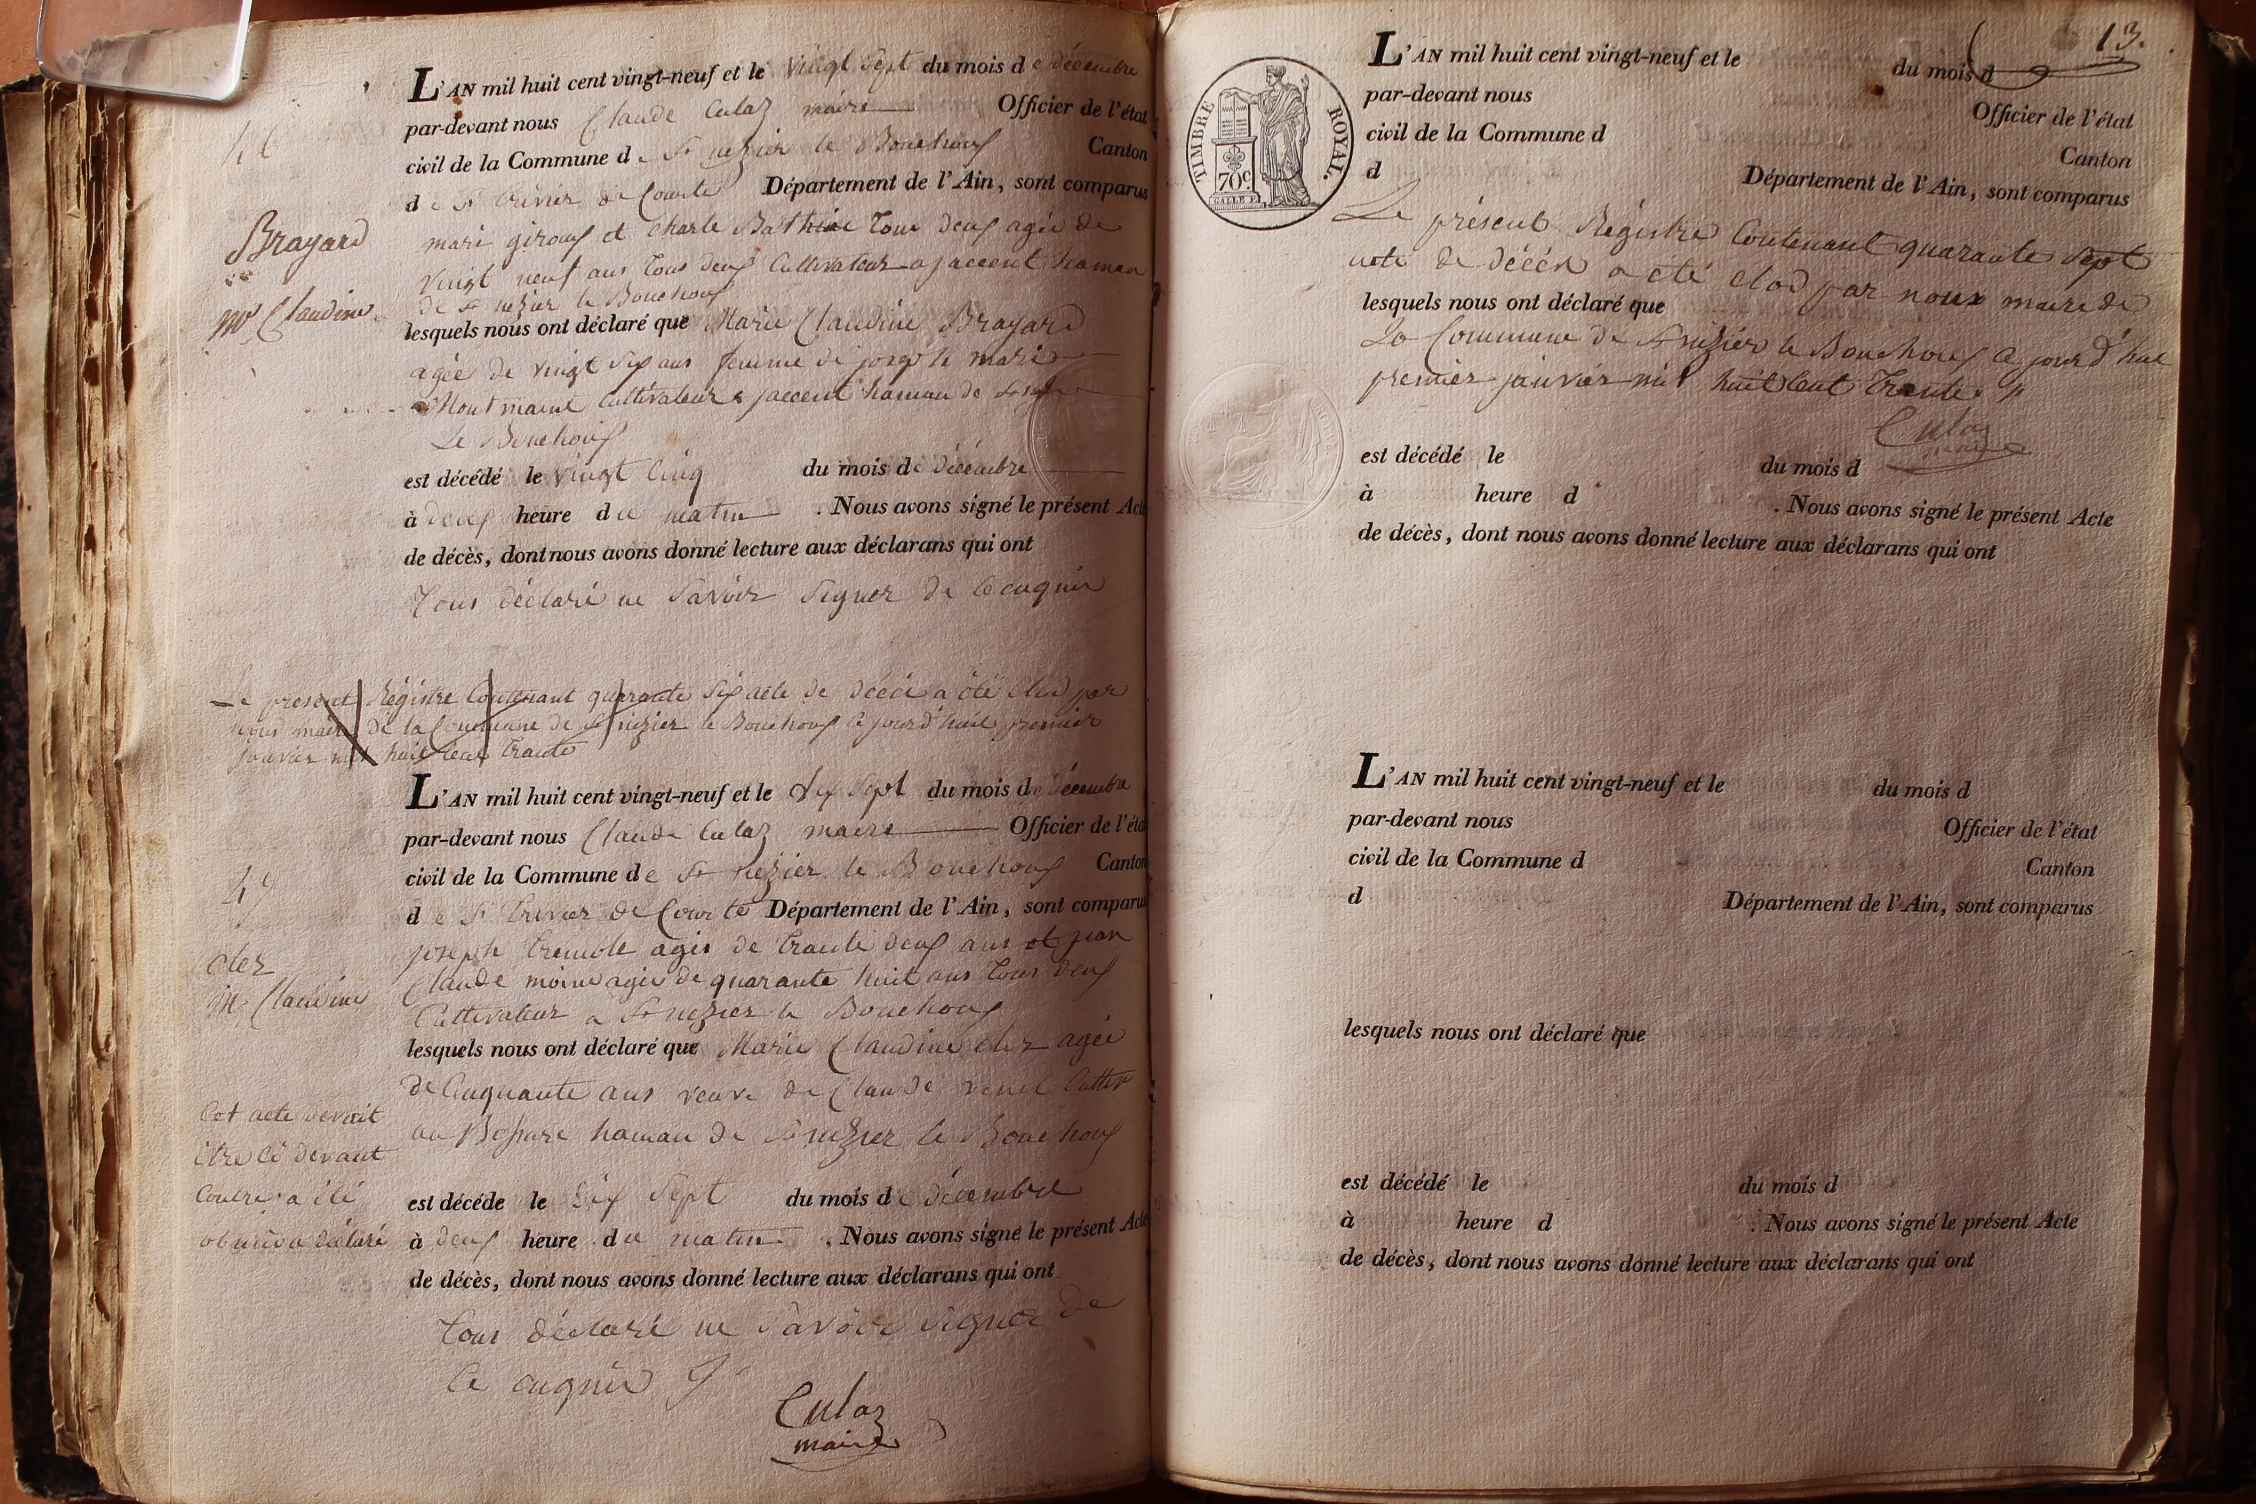 46
Brayard
Me Claudine
L'AN mil huit cent vingt-neuf et le vingt sept du mois de décembre
par-devant nous Claude Culaz maire Officier de l'état
civil de la Commune de St nezier le Bouchoux Canton
de St trivier de Courte Département de l'Ain, sont comparus
mari giroux et Charle tous deux agée de
vingt neuf ans tous deux Cultivateur a jaccent hamau
de St nezier le Bouchoux
lesquels nous ont déclaré que Marie Claudine Brayard
agée de vingt six ans femme de joseph mari
Montmain Cultivateur a jaccent hamau de St
Le Bouchoux
est décédé le vingt Cinq du mois de décembre
à deux heure du matin . Nous avons signé le présent Acte
de décès, dont nous avons donné lecture aux déclarans qui ont
tous déclaré ne savoir signer de ce enquis
Le present Régistre Contenant quarante six acte de décès a été Clod par
nous maire de la Commune de St nizier le Bouchoux a jourd'hui premier
janvier mil huit cent trante
47
clez
Me Claudine
Cet acte devait
être ci devant
L'AN mil huit cent vingt-neuf et le dix sept du mois de décembre
par-devant nous Claude Culaz maire Officier de l'état
civil de la Commune de St nezier le Bouchoux Canton
de St trivier de Courte Département de l'Ain, sont comparus
joseph agée de trante deux ans et jean
Claude moine agée de quarante huit ans tous deux
Cultivateur a St nezier le Bouchoux
lesquels nous ont déclaré que Marie Claudine clez agée
de Cinquante ans veuve de Claude
au hamau de St nizier le Bouchoux
est décédé le dix sept du mois de décembre
à deux heure du matin . Nous avons signé le présent Acte
de décès, dont nous avons donné lecture aux déclarans qui ont
tous déclaré ne savoir signer de
ce enquis
Culaz
maire
13.
TIMBRE ROYAL.
70c
L'AN mil huit cent vingt-neuf et le du mois d
par-devant nous Officier de l'état
civil de la Commune d Canton
d Département de l'Ain, sont comparus
Le présent Régistre Contenant quarante sept
acte de décès a été clod par nous maire de
lesquels nous ont déclaré que
La Commune de St nizier le Bouchoux a jourd'hui
premier janvier mil huit Cent trante
Culaz
est décédé le du mois d
à heure d . Nous avons signé le présent Acte
de décès, dont nous avons donné lecture aux déclarans qui ont
L'AN mil huit cent vingt-neuf et le du mois d
par-devant nous Officier de l'état
civil de la Commune d Canton
d Département de l'Ain, sont comparus
lesquels nous ont déclaré que
est décédé le du mois d
à heure d . Nous avons signé le présent Acte
de décès, dont nous avons donné lecture aux déclarans qui ont